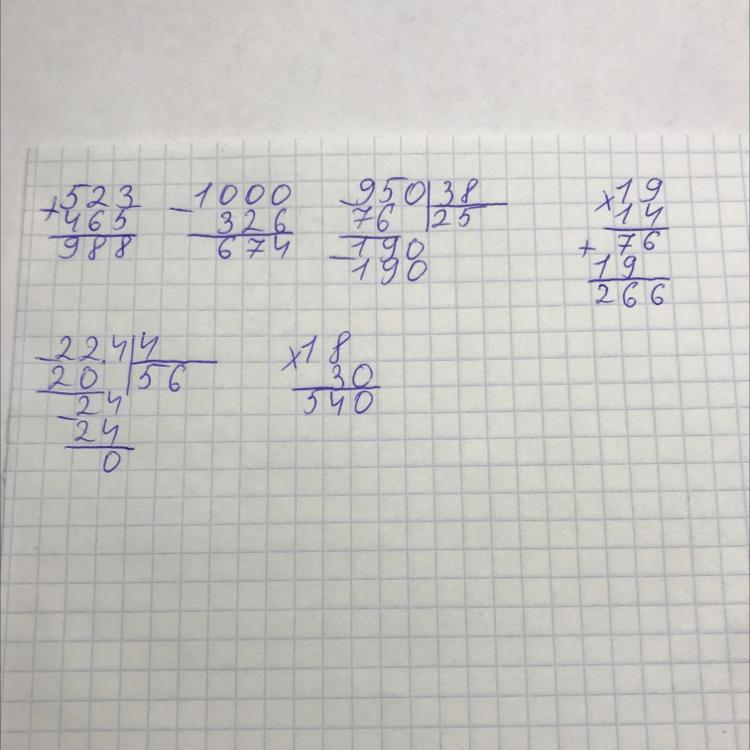 +523 -1000 -950|38 ×19
465 326 76 |25 14
988 674 -190 +76
190 19
266
-224|4 ×18
20 |56 30
-24 540
24
0